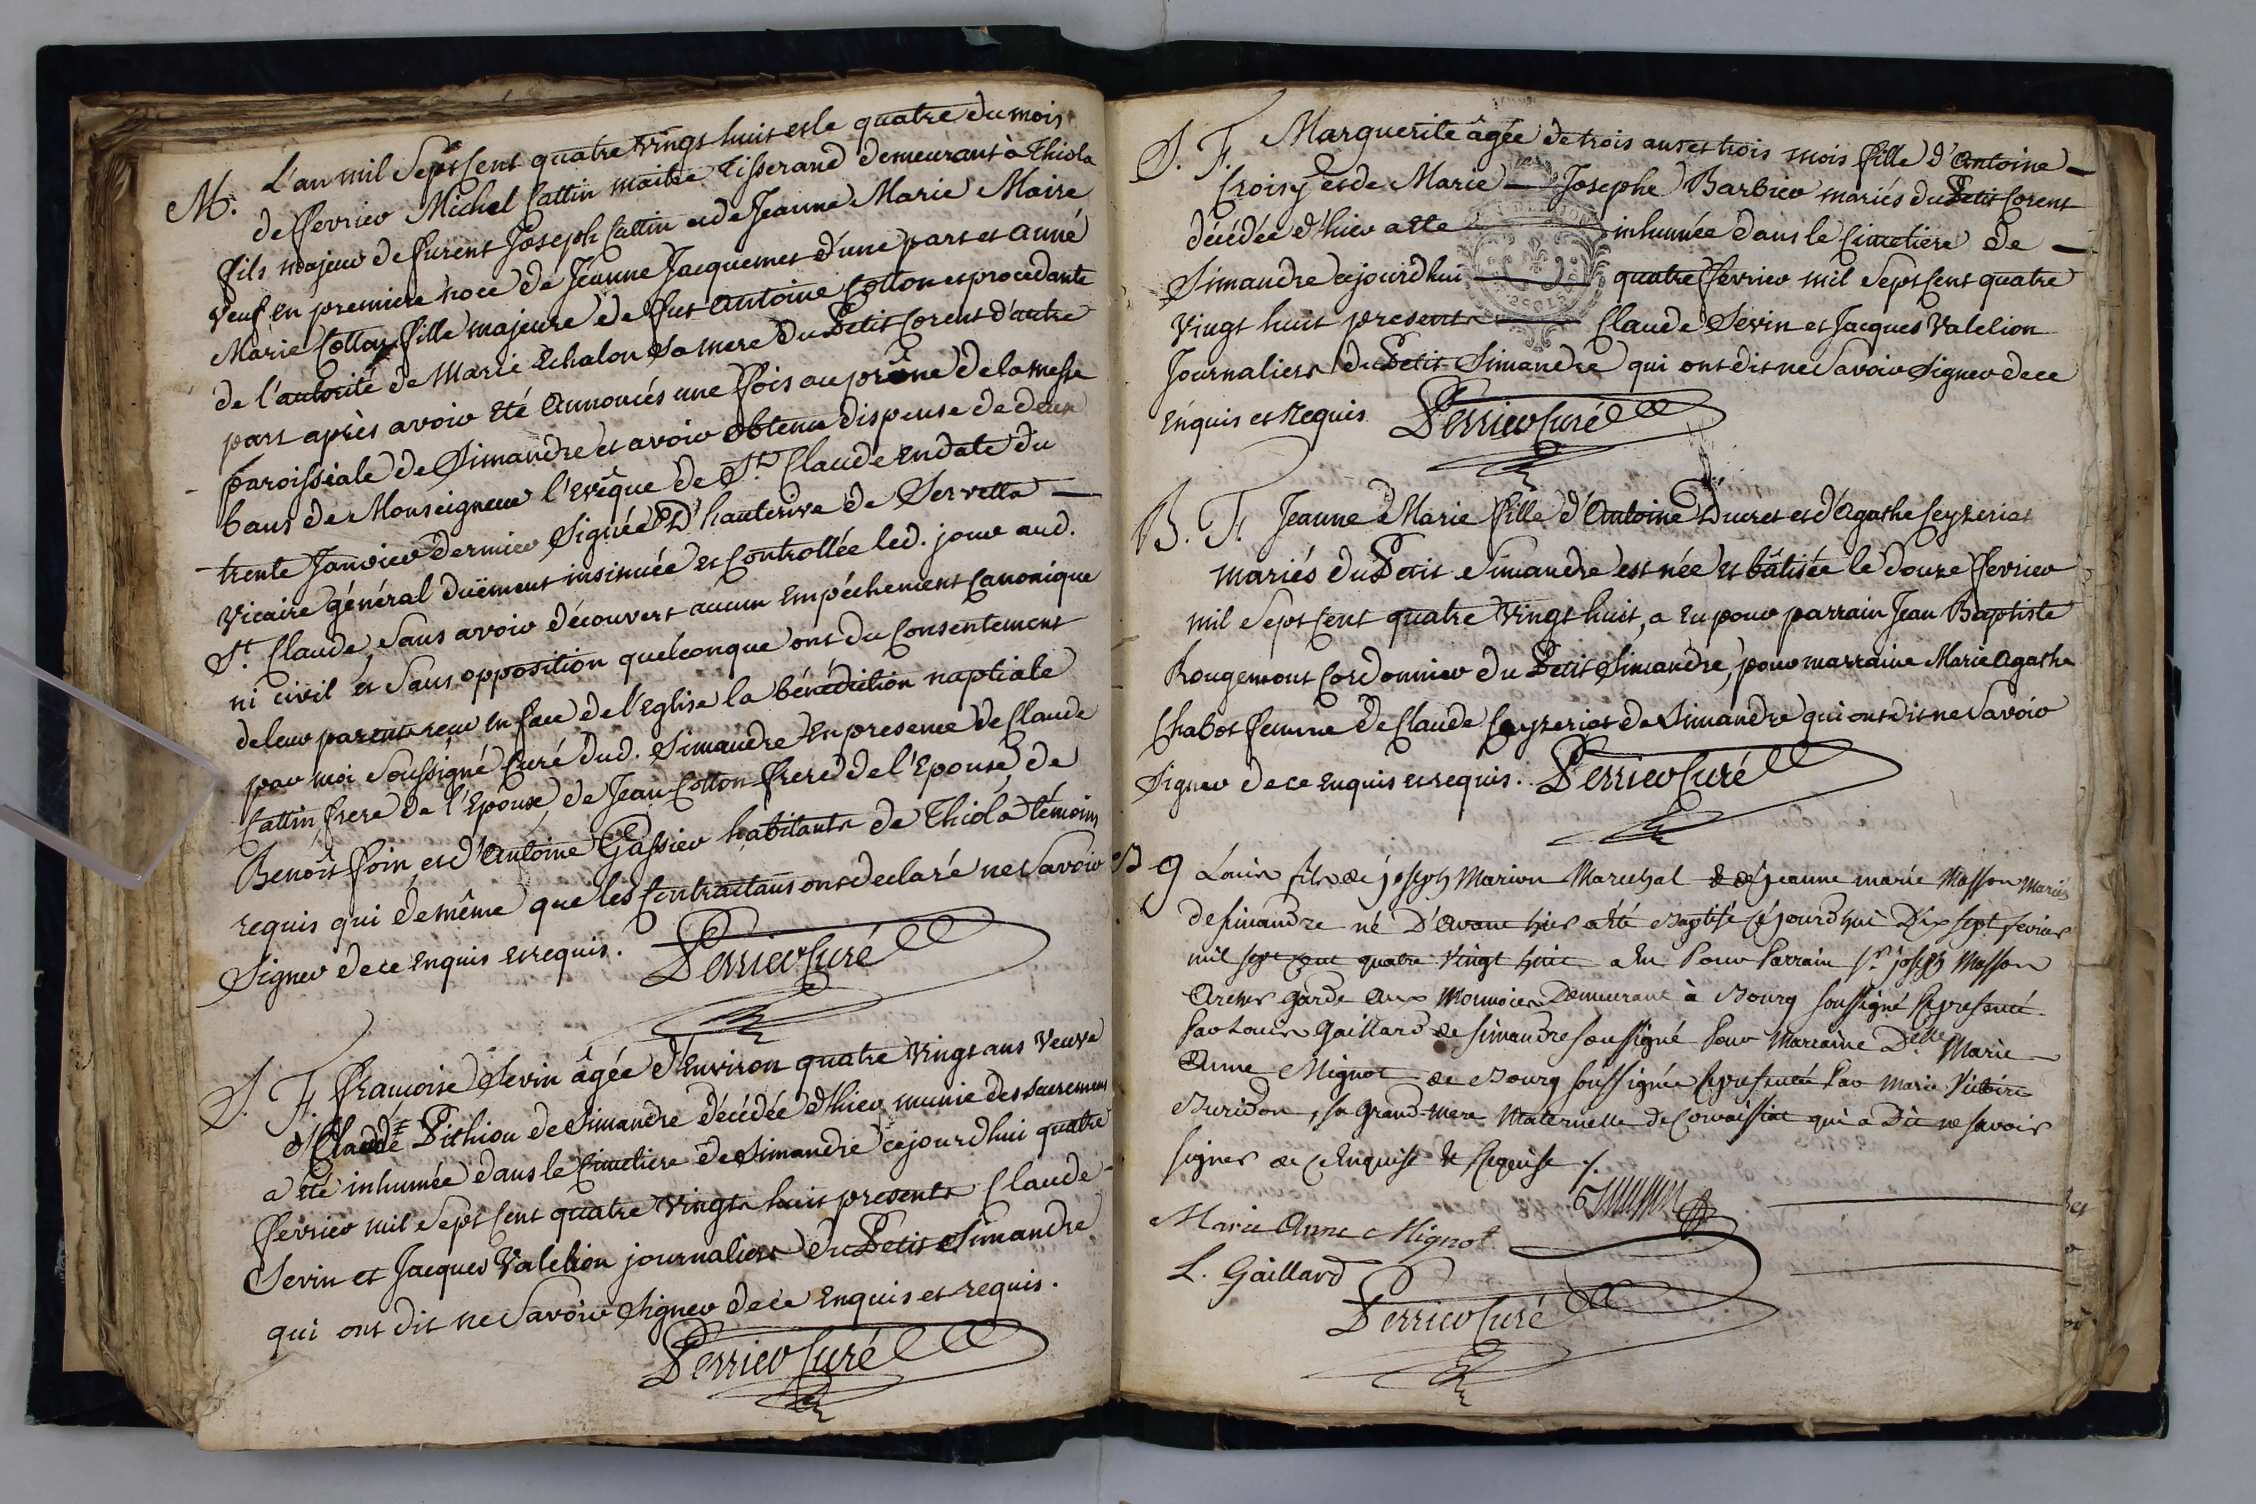 M. L'an mil Sept Cent quatre vingt huit et le quatre du mois
de ffevrier Michel Cattin maitre Tisserand demeurant à Thiola
fils majeur de furent Joseph Cattin et de Jeanne Marie Moire
veuf en premiere noce de Jeanne Jacquemet d'une part et anne
Marie Cotton fille majeure de fut antoine Cotton et procedante
de l'autorité de Marie Echalon sa mere du Petit Corent d'autre
part après avoir été annoncés une fois au prône de la messe
paroissiale de Simandre et avoir obtenu dispense de deux
bans de Monseigneur l'evêque de St. Claude en date du
trente Janvier dernier signée D'hauterive de Servella
Vicaire général duëment insinuée et controllée led. jour aud.
St. Claude, sans avoir découvert aucun empéchement canonique
ni civil et sans opposition quelconque ont du consentement
de leur parents reçu en face de l'Eglise la bénédiction naptiale
par moi soussigné Curé dud. Simandre en presence de Claude
Cattin frere de l'Epoux, de Jean Cotton frere de l'Epouse, de
Benoît ffoin, et d'antoine Gassier habitants de Thiola témoins
requis qui de même que les Contractans ont declaré ne savoir
Signer de ce enquis et requis. Perrier Curé
S. F. ffrancoise Sevin âgée d'environ quatre vingt ans veuve
d'Claude Pithiou de Simandre décédée d'hier munie des sacremens
a été inhumée dans le Cimetiere de Simandre cejourd'hui quatre
ffevrier mil Sept Cent quatre vingt huit presents Claude
Sevin et Jacques Valelion journaliers du Petit Simandre
qui ont dit ne savoir signer de ce enquis et requis.
Perrier Curé
S. F. Marguerite âgée de trois ans et trois mois fille d'Antoine
Croisy et de Marie Josephe Barbier mariés du Petit Corent
décédée d'hier a été inhumée dans le Cimetiere de
Simandre cejourd'hui quatre ffevrier mil Sept Cent quatre
vingt huit presents Claude Sevin et Jacques Valelion
Journaliers du Petit Simandre qui ont dit ne savoir signer de ce
enquis et requis Perrier Curé
B. F. Jeanne Marie fille d'Antoine Ducret et d'Agathe Ceyzeriat
mariés du Petit Simandre est née et bâtisée le douze ffevrier
mil Sept Cent quatre vingt huit, a eu pour parrain Jean Baptiste
Rougemont Cordonnier du Petit Simandre, pour marraine Marie Agathe
Chabot femme de Claude Ceyzeriat de Simandre qui ont dit ne savoir
signer de ce enquis et requis. Perrier Curé
B g Louis fils de joseph Marion Marechal & de jeanne marie Masson Mariés
de simandre né D'avant hier a été Baptisé cejourd'hui Dix sept fevrier
mil sept cent quatre vingt huit a eu Pour Parrain Sr. joseph Masson
Archer garde aux Monnoies Demeurant à Bourg soussigné Representé
Par Louis Gaillard de simandre soussigné Pour Marraine Delle Marie
Anne Mignot de Bourg soussignée Representée Par Marie Victoire
Buridon, sa grand-mere Maternelle de Corvaissiat qui a Dit ne savoir
signer de ce Enquise & Requise /.
Marie Anne Mignot
L. Gaillard
Perrier Curé